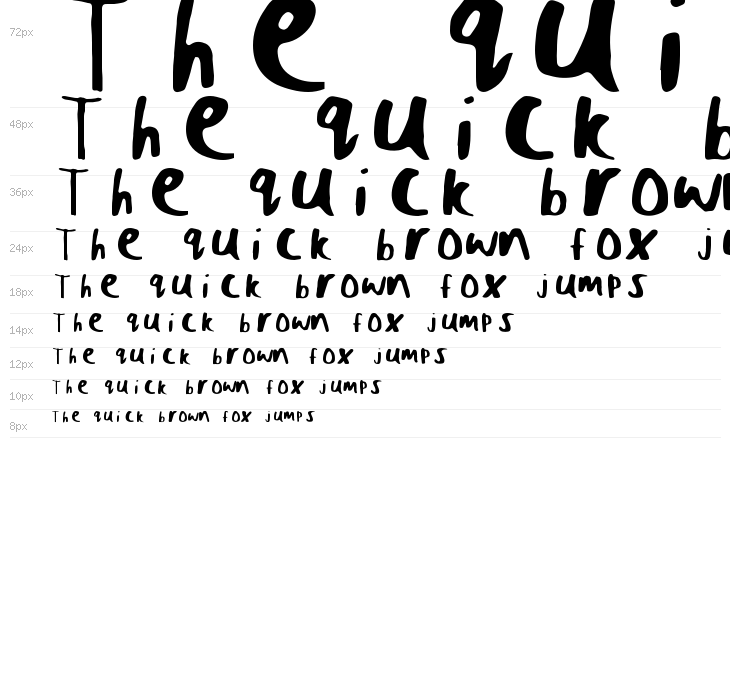 72px The qui
48px The quick b
36px The quick brown
24px The quick brown fox ju
18px The quick brown fox jumps
14px The quick brown fox jumps
12px The quick brown fox jumps
10px The quick brown fox jumps
8px The quick brown fox jumps